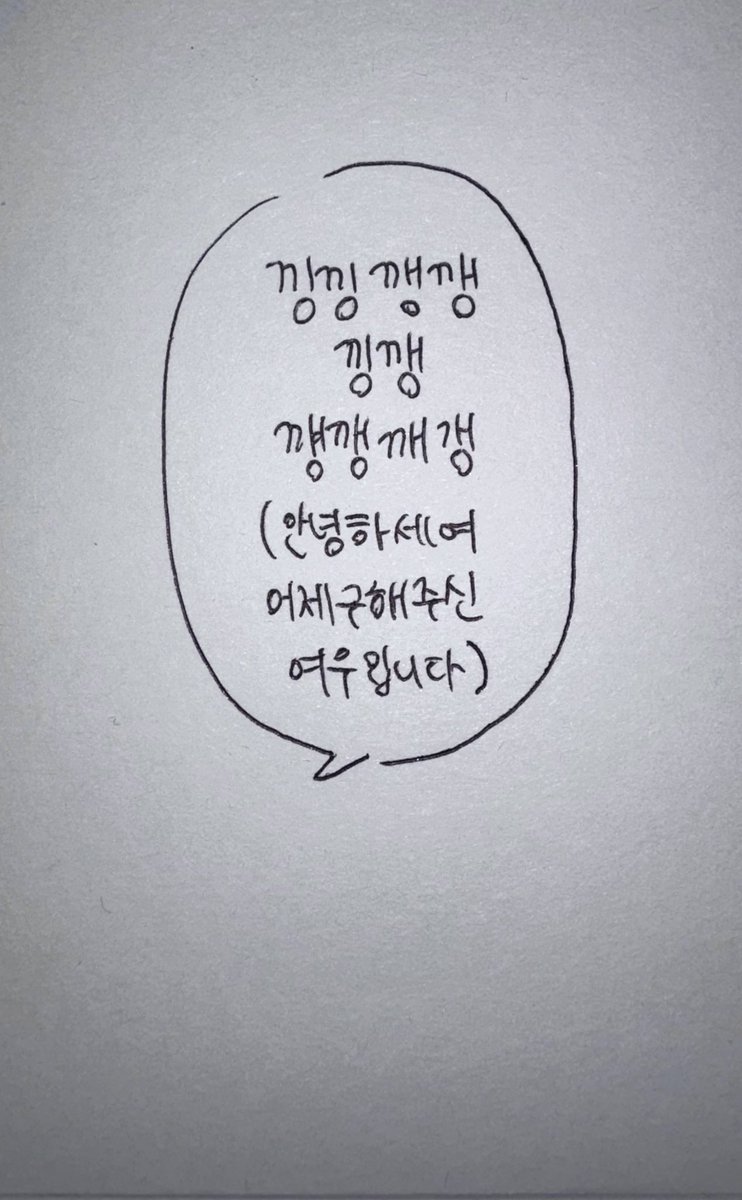 낑낑 깽깽
낑깽
꺵깽 깨갱
(안녕하세여
어제구해주신
여우입니다)